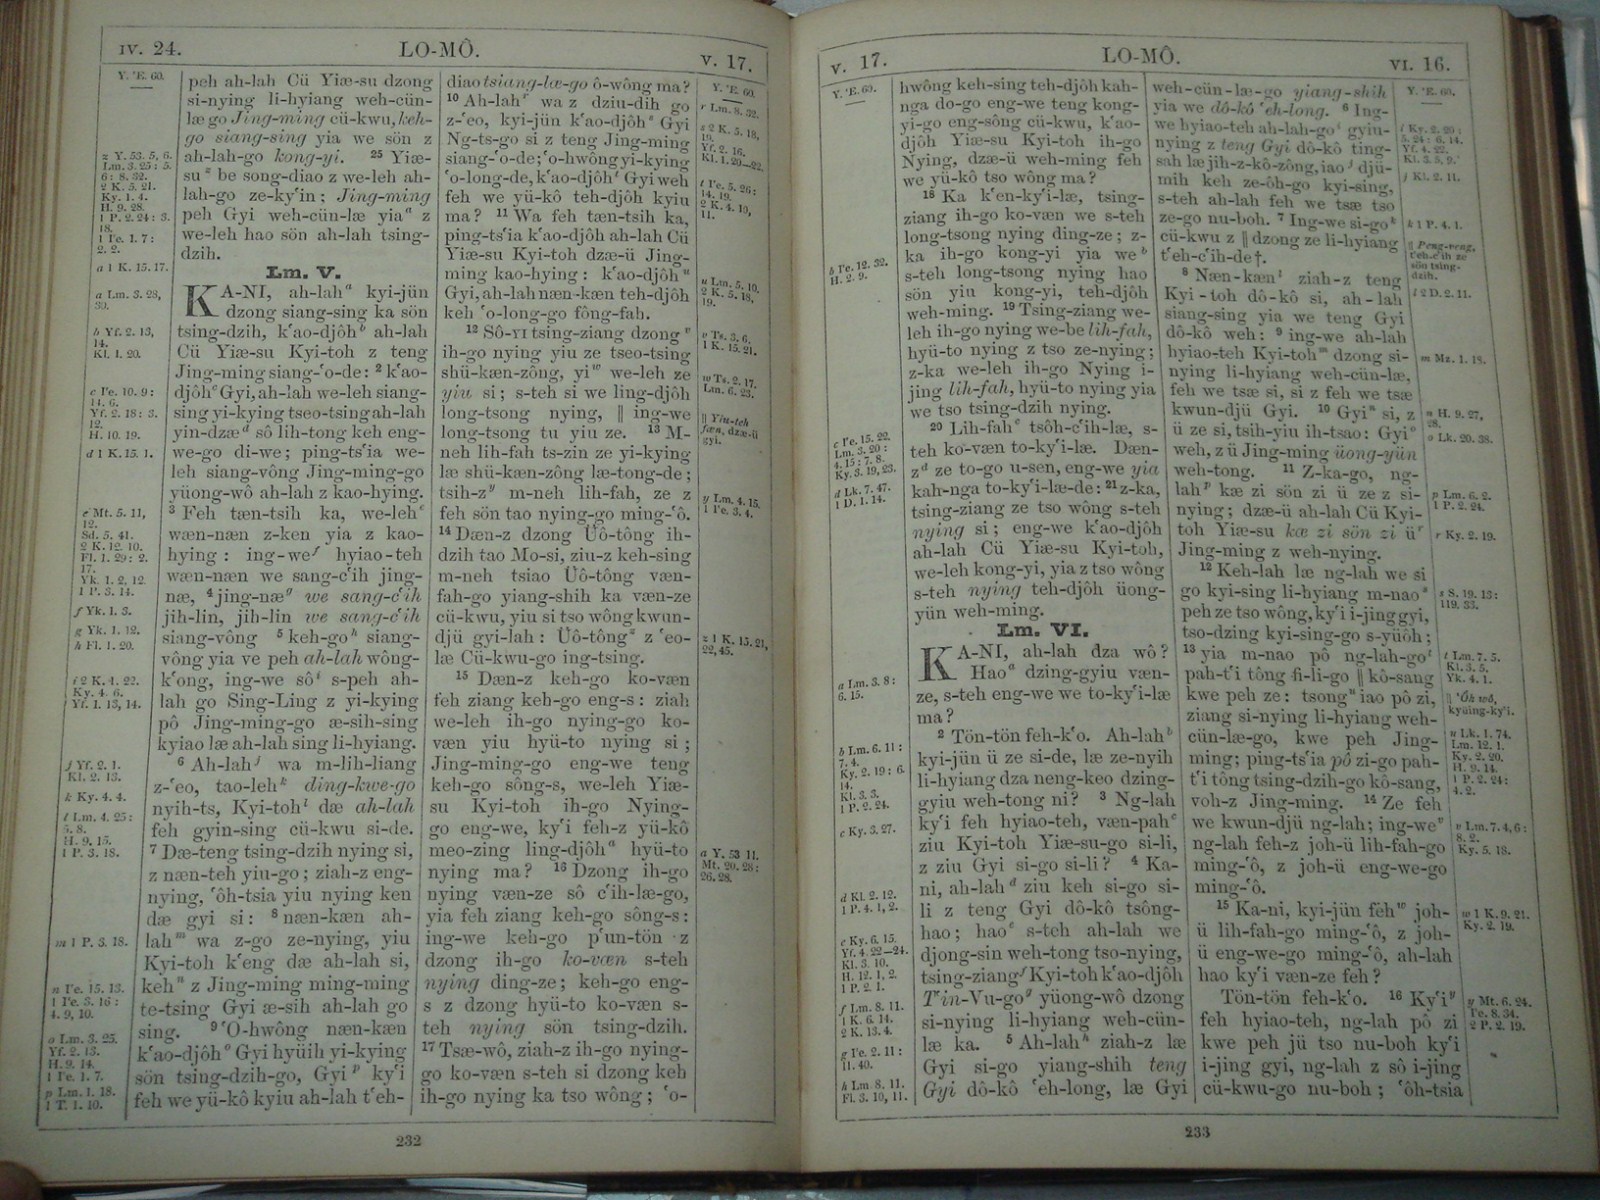 IV. 24.
LO-MÔ.
V. 17.
Y. 'E. 60.
z Y. 53. 5, 6.
Lm. 3. 25: 5.
6: 8. 32.
2 K. 5. 21.
Ky. 1. 4.
H. 9. 28.
1 P. 2. 24: 3.
18.
1 Pe. 1. 7:
2. 2.
a 1 K. 15. 17.
a Lm. 3. 28,
30.
b Yf. 2. 13,
14.
Kl. 1. 20.
c Pe. 10. 9:
14. 6.
Yf. 2. 18: 3.
12.
H. 10. 19.
d 1 K. 15. 1.
e Mt. 5. 11,
12.
Sd. 5. 41.
2 K. 12. 10.
Fl. 1. 29: 2.
17.
Yk. 1. 2, 12.
1 P. 3. 14.
f Yk. 1. 3.
g Yk. 1. 12.
h Fl. 1. 20.
i 2 K. 1. 22.
Ky. 4. 6.
Yf. 1. 13, 14.
j Yf. 2. 1.
Kl. 2. 13.
k Ky. 4. 4.
l Lm. 4. 25:
5. 8.
H. 9. 15.
1 P. 3. 18.
m 1 P. 3. 18.
n Pe. 15. 13.
1 Pe. 3. 16:
4. 9, 10.
o Lm. 3. 25.
Yf. 2. 13.
H. 9. 14.
1 Pe. 1. 7.
p Lm. 1. 18.
1 T. 1. 10.
peh ah-lah Cü Yiæ-su dzong
si-nying li-hyiang weh-cün-
læ go Jing-ming cü-kwu, keh-
go siang-sing yia we sön z
ah-lah-go kong-yi. 25 Yiæ-
su z be song-diao z we-leh ah-
lah-go ze-ky'in; Jing-ming
peh Gyi weh-cün-læ yia a z
we-leh hao sön ah-lah tsing-
dzih.
Lm. V.
KA-NI, ah-lah a kyi-jün
dzong siang-sing ka sön
tsing-dzih, k'ao-djôh b ah-lah
Cü Yiæ-su Kyi-toh z teng
Jing-ming siang-'o-de: 2 k'ao-
djôh c Gyi, ah-lah we-leh siang-
sing yi-kying tseo-tsing ah-lah
yin-dzæ d sô lih-tong keh eng-
we-go di-we; ping-ts'ia we-
leh siang-vông Jing-ming-go
yüong-wô ah-lah z kao-hying.
3 Feh tæn-tsih ka, we-leh e
wæn-næn z-ken yia z kao-
hying: ing-we f hyiao-teh
wæn-næn we sang-c'ih jing-
næ, 4 jing-næ g we sang-c'ih
jih-lin, jih-lin we sang-c'ih
siang-vông 5 keh-go h siang-
vông yia ve peh ah-lah wông-
k'ong, ing-we sô i s-peh ah-
lah go Sing-Ling z yi-kying
pô Jing-ming-go æ-sih-sing
kyiao læ ah-lah sing li-hyiang.
6 Ah-lah j wa m-lih-liang
z-'eo, tao-leh k ding-kwe-go
nyih-ts, Kyi-toh l dæ ah-lah
feh gyin-sing cü-kwu si-de.
7 Dæ-teng tsing-dzih nying si,
z næn-teh yiu-go; ziah-z eng-
nying, 'ôh-tsia yiu nying ken
dæ gyi si: 8 næn-kæn ah-
lah m wa z-go ze-nying, yiu
Kyi-toh k'eng dæ ah-lah si,
keh n z Jing-ming ming-ming
te-tsing Gyi æ-sih ah-lah go
sing. 9 'O-hwông næn-kæn
k'ao-djôh o Gyi hyüih yi-kying
sön tsing-dzih-go, Gyi p ky'i
feh we yü-kô kyiu ah-lah t'eh-
diao tsiang-læ-go ô-wông ma?
10 Ah-lah r wa z dziu-dih go
z-'eo, kyi-jün k'ao-djôh s Gyi
Ng-ts-go si z teng Jing-ming
siang-'o-de; 'o-hwông yi-kying
'o-long-de, k'ao-djôh t Gyi weh
feh we yü-kô teh-djôh kyiu
ma? 11 Wa feh tæn-tsih ka,
ping-ts'ia k'ao-djôh ah-lah Cü
Yiæ-su Kyi-toh dzæ-ü Jing-
ming kao-hying: k'ao-djôh u
Gyi, ah-lah næn-kæn teh-djôh
keh 'o-long-go fông-fah.
12 Sô-yi tsing-ziang dzong v
ih-go nying yiu ze tseo-tsing
shü-kæn-zông, yi w we-leh ze
yiu si; s-teh si we ling-djôh
long-tsong nying, ‖ ing-we
long-tsong tu yiu ze. 13 M-
neh lih-fah ts-zin ze yi-kying
læ shü-kæn-zông læ-tong-de;
tsih-z y m-neh lih-fah, ze z
feh sön tao nying-go ming-'ô.
14 Dæn-z dzong Üô-tông ih-
dzih tao Mo-si, ziu-z keh-sing
m-neh tsiao Üô-tông væn-
fah-go yiang-shih ka væn-ze
cü-kwu, yiu si tso wông kwun-
djü gyi-lah: Üô-tông z z 'eo-
læ Cü-kwu-go ing-tsing.
15 Dæn-z keh-go ko-væn
feh ziang keh-go eng-s: ziah
we-leh ih-go nying-go ko-
væn yiu hyü-to nying si;
Jing-ming-go eng-we teng
keh-go sông-s, we-leh Yiæ-
su Kyi-toh ih-go Nying-
go eng-we, ky'i feh-z yü-kô
meo-zing ling-djôh a hyü-to
nying ma? 16 Dzong ih-go
nying væn-ze sô c'ih-læ-go,
yia feh ziang keh-go sông-s:
ing-we keh-go p'un-tön z
dzong ih-go ko-væn s-teh
nying ding-ze; keh-go eng-
s z dzong hyü-to ko-væn s-
teh nying sön tsing-dzih.
17 Tsæ-wô, ziah-z ih-go nying-
go ko-væn s-teh si dzong keh
ih-go nying ka tso wông; 'o-
Y. 'E. 60.
r Lm. 8. 32.
s 2 K. 5. 18,
19.
Yf. 2. 16.
Kl. 1. 20—22.
t Pe. 5. 26:
14. 19.
2 K. 4. 10,
11.
u Lm. 5. 10,
2 K. 5. 18,
19.
v Ts. 3. 6.
1 K. 15. 21.
w Ts. 2. 17.
Lm. 6. 23.
‖ Yiu-teh
fæn, dzæ-ü
gyi.
y Lm. 4. 15.
1 Pe. 3. 4.
z 1 K. 15. 21,
22, 45.
a Y. 53 11.
Mt. 20. 28:
26. 28.
232
V. 17.
LO-MÔ.
VI. 16.
Y. 'E. 60.
b Pe. 12. 32.
H. 2. 9.
c Pe. 15. 22.
Lm. 3. 20:
4. 15: 7. 8.
Ky. 3. 19, 23.
d Lk. 7. 47.
1 D. 1. 14.
a Lm. 3. 8:
6. 15.
b Lm. 6. 11:
7. 4.
Ky. 2. 19: 6.
14.
Kl. 3. 3.
1 P. 2. 24.
c Ky. 3. 27.
d Kl. 2. 12.
1 P. 4. 1, 2.
e Ky. 6. 15.
Yf. 4. 22—24.
Kl. 3. 10.
H. 12. 1, 2.
1 P. 2. 1.
f Lm. 8. 11.
1 K. 6. 14.
2 K. 13. 4.
g Pe. 2. 11:
11. 40.
h Lm. 8. 11.
Fl. 3. 10, 11.
hwông keh-sing teh-djôh kah-
nga do-go eng-we teng kong-
yi-go eng-sông cü-kwu, k'ao-
djôh Yiæ-su Kyi-toh ih-go
Nying, dzæ-ü weh-ming feh
we yü-kô tso wông ma?
18 Ka k'en-ky'i-læ, tsing-
ziang ih-go ko-væn we s-teh
long-tsong nying ding-ze; z-
ka ih-go kong-yi yia we b
s-teh long-tsong nying hao
sön yiu kong-yi, teh-djôh
weh-ming. 19 Tsing-ziang we-
leh ih-go nying we-be lih-fah,
hyü-to nying z tso ze-nying;
z-ka we-leh ih-go Nying i-
jing lih-fah, hyü-to nying yia
we tso tsing-dzih nying.
20 Lih-fah c tsôh-c'ih-læ, s-
teh ko-væn to-ky'i-læ. Dæn-
z d ze to-go u-sen, eng-we yia
kah-nga to-ky'i-læ-de: 21 z-ka,
tsing-ziang ze tso wông s-teh
nying si; eng-we k'ao-djôh
ah-lah Cü Yiæ-su Kyi-toh,
we-leh kong-yi, yia z tso wông
s-teh nying teh-djôh üong-
yün weh-ming.
Lm. VI.
KA-NI, ah-lah dza wô?
Hao a dzing-gyiu væn-
ze, s-teh eng-we we to-ky'i-læ
ma?
2 Tön-tön feh-k'o. Ah-lah b
kyi-jün ü ze si-de, læ ze-nyih
li-hyiang dza neng-keo dzing-
gyiu weh-tong ni? 3 Ng-lah
ky'i feh hyiao-teh, væn-pah c
ziu Kyi-toh Yiæ-su-go si-li,
z ziu Gyi si-go si-li? 4 Ka-
ni, ah-lah d ziu keh si-go si-
li z teng Gyi dô-kô tsông-
hao; hao e s-teh ah-lah we
djong-sin weh-tong tso-nying,
tsing-ziang f Kyi-toh k'ao-djôh
T'in-Vu-go g yüong-wô dzong
si-nying li-hyiang weh-cün-
læ ka. 5 Ah-lah h ziah-z læ
Gyi si-go yiang-shih teng
Gyi dô-kô 'eh-long, læ Gyi
weh-cün-læ-go yiang-shih
yia we dô-kô 'eh-long. 6 Ing-
we hyiao-teh ah-lah-go i gyiu-
nying z teng Gyi dô-kô ting-
sah læ jih-z-kô-zông, iao j djü-
mih keh ze-ôh-go kyi-sing,
s-teh ah-lah feh we tsæ tso
ze-go nu-boh. 7 Ing-we si-go k
cü-kwu z ‖ dzong ze li-hyiang
t'eh-c'ih-de †.
8 Næn-kæn l ziah-z teng
Kyi-toh dô-kô si, ah-lah
siang-sing yia we teng Gyi
dô-kô weh: 9 ing-we ah-lah
hyiao-teh Kyi-toh m dzong si-
nying li-hyiang weh-cün-læ,
feh we tsæ si, si z feh we tsæ
kwun-djü Gyi. 10 Gyi n si, z
ü ze si, tsih-yiu ih-tsao: Gyi o
weh, z ü Jing-ming üong-yün
weh-tong. 11 Z-ka-go, ng-
lah p kæ zi sön zi ü ze z si-
nying; dzæ-ü ah-lah Cü Kyi-
toh Yiæ-su kæ zi sön zi ü r
Jing-ming z weh-nying.
12 Keh-lah læ ng-lah we si
go kyi-sing li-hyiang m-nao s
peh ze tso wông, ky'i i-jing gyi,
tso-dzing kyi-sing-go s-yüôh;
13 yia m-nao pô ng-lah-go t
pah-t'i tông fi-li-go ‖ kô-sang
kwe peh ze: tsong u iao pô zi,
ziang si-nying li-hyiang weh-
cün-læ-go, kwe peh Jing-
ming; ping-ts'ia pô zi-go pah-
t'i tông tsing-dzih-go kô-sang,
voh-z Jing-ming. 14 Ze feh
we kwun-djü ng-lah; ing-we v
ng-lah feh-z joh-ü lih-fah-go
ming-'ô, z joh-ü eng-we-go
ming-'ô.
15 Ka-ni, kyi-jün feh w joh-
ü lih-fah-go ming-'ô, z joh-
ü eng-we-go ming-'ô, ah-lah
hao ky'i væn-ze feh?
Tön-tön feh-k'o. 16 Ky'i y
feh hyiao-teh, ng-lah pô zi
kwe peh jü tso nu-boh ky'i
i-jing gyi, ng-lah z sô i-jing
cü-kwu-go nu-boh; 'ôh-tsia
Y. 'E. 60.
i Ky. 2. 20:
5. 24: 6. 14.
Yf. 4. 22.
Kl. 3. 5, 9.
j Kl. 2. 11.
k 1 P. 4. 1.
‖ Peng-veng,
t'eh-c'ih ze
sön tsing-
dzih.
l 2 D. 2. 11.
m Mz. 1. 18.
n H. 9. 27,
28.
o Lk. 20. 38.
p Lm. 6. 2.
1 P. 2. 24.
r Ky. 2. 19.
s S. 19. 13:
119. 33.
t Lm. 7. 5.
Kl. 3. 5.
Yk. 4. 1.
‖ 'Ôh wô,
kyüing-ky'i.
u Lk. 1. 74.
Lm. 12. 1.
Ky. 2. 20.
H. 9. 14.
1 P. 2. 24:
4. 2.
v Lm. 7. 4, 6:
8. 2.
Ky. 5. 18.
w 1 K. 9. 21.
Ky. 2. 19.
y Mt. 6. 24.
Pe. 8. 34.
2 P. 2. 19.
233